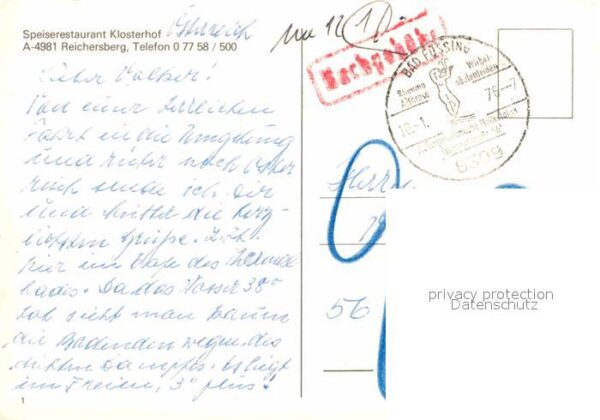 Speiserestaurant Klosterhof
A-4981 Reichersberg, Telefon 0 77 58 / 500
Österreich
Lieber Volker!
Von einer herrlichen
Fahrt in die Umgebung
und rüber nach Öster
reich sende ich Dir
und bitte die herz-
lichsten Grüße.
hier im Cafe des Thermal
bades. Da das Wasser 38°
hat sieht man kaum
die Badenden wegen des
dichten Dampfes. Es liegt
im Freien, 3° plus!
1
nur 12
Nachgebühr
BAD FÜSSING
Rheuma
Wirbel
Arthrose
10.-1.
76.-7
8399
Herrn
56
privacy protection
Datenschutz